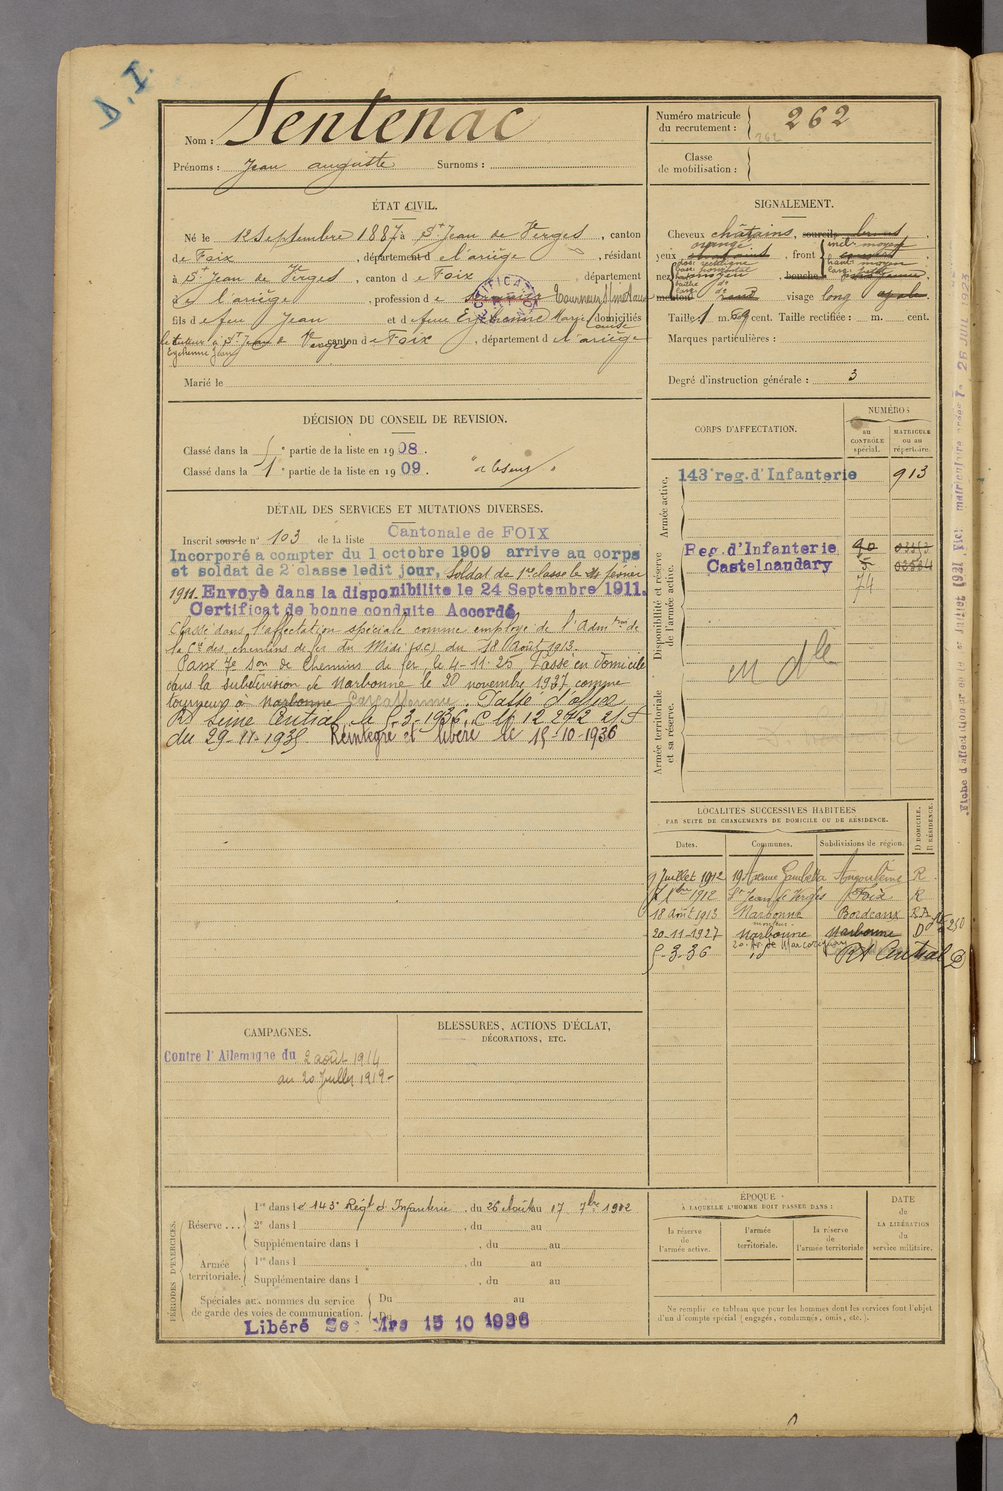 D.I.
Nom : Sentenac
Prénoms : Jean auguste Surnoms :
Numéro matricule du recrutement : 262
262
Classe de mobilisation :
ÉTAT CIVIL.
Né le 12 Septembre 1887 à St Jean de Verges, canton
de Foix, département d e l'ariège, résidant
à St Jean de Verges, canton d e Foix, département
de l'ariège, profession d e Tourneur s/métaux
fils d e feu Jean et d e feue Eychenne Marie Louise domiciliés
le tuteur à St Jean de Verges canton d e Foix, département d e l'ariège
Eychenne Jean
Marié le
SIGNALEMENT.
Cheveux châtains, sourcils bruns,
yeux orangé, front incl. moyen
haut. moyen
nez dos rectiligne
base horizontale
bouche
menton rond visage long
Taille 1 m. 69 cent. Taille rectifiée : m. cent.
Marques particulières :
Degré d'instruction générale : 3
DÉCISION DU CONSEIL DE REVISION.
Classé dans la 5e partie de la liste en 1908.
Classé dans la 1e partie de la liste en 1909. "absent".
CORPS D'AFFECTATION.
NUMÉROS
au CONTRÔLE spécial.
MATRICULE ou au répertoire.
Armée active.
143e reg. d'Infanterie 913
Disponibilité et réserve de l'armée active.
Reg. d'Infanterie 90
Castelnaudary 5
74
Armée territoriale et sa réserve.
DÉTAIL DES SERVICES ET MUTATIONS DIVERSES.
Inscrit sous le n° 103 de la liste Cantonale de FOIX
Incorporé a compter du 1 octobre 1909 arrive au corps
et soldat de 2e classe ledit jour, Soldat de 1re classe le février
1911. Envoyé dans la disponibilite le 24 Septembre 1911.
Certificat de bonne conduite Accordé
Classé dans l'affectation spéciale comme employé de l'Admtion de
la Cie des chemins de fer du Midi (s.c) du 18 Août 1913.
Passé 7e Son de Chemins de fer le 4-11-25 Passé en domicile
dans la subdivision de Narbonne le 20 novembre 1927 comme
tourneur à Narbonne Carcassonne. Passé d'office
Rt Seine Central le 5-3-1936, C M 12 292
du 29-11-1935 Réintégré et libéré le 15-10-1936
LOCALITÉS SUCCESSIVES HABITÉES
PAR SUITE DE CHANGEMENTS DE DOMICILE OU DE RÉSIDENCE.
Dates. Communes. Subdivisions de région. D DOMICILE. R RÉSIDENCE.
9 Juillet 1912 19 Avenue Gambetta Angoulême R
1912 St Jean de Verges Foix R
18 Août 1913 Narbonne Bordeaux R
20-11-1927 Narbonne Narbonne D
5-3-36 id Rt Central D
CAMPAGNES.
Contre l'Allemagne du 2 août 1914
au 20 Juillet 1919-
BLESSURES, ACTIONS D'ÉCLAT,
DÉCORATIONS, ETC.
PÉRIODES D'EXERCICES.
Réserve... 1re dans l e 143e Régt d'Infanterie, du 26 Août au 17 7bre 1912
2e dans l , du au
Supplémentaire dans l , du au
Armée territoriale. 1re dans l , du au
Supplémentaire dans l , du au
Spéciales aux hommes du service
de garde des voies de communication.
Du au
Du
Libéré 15 10 1936
ÉPOQUE
À LAQUELLE L'HOMME DOIT PASSER DANS :
la réserve de l'armée active.
l'armée territoriale.
la réserve de l'armée territoriale
DATE de LA LIBÉRATION du service militaire.
Ne remplir ce tableau que pour les hommes dont les services font l'objet
d'un décompte spécial (engagés, condamnés, omis, etc.).